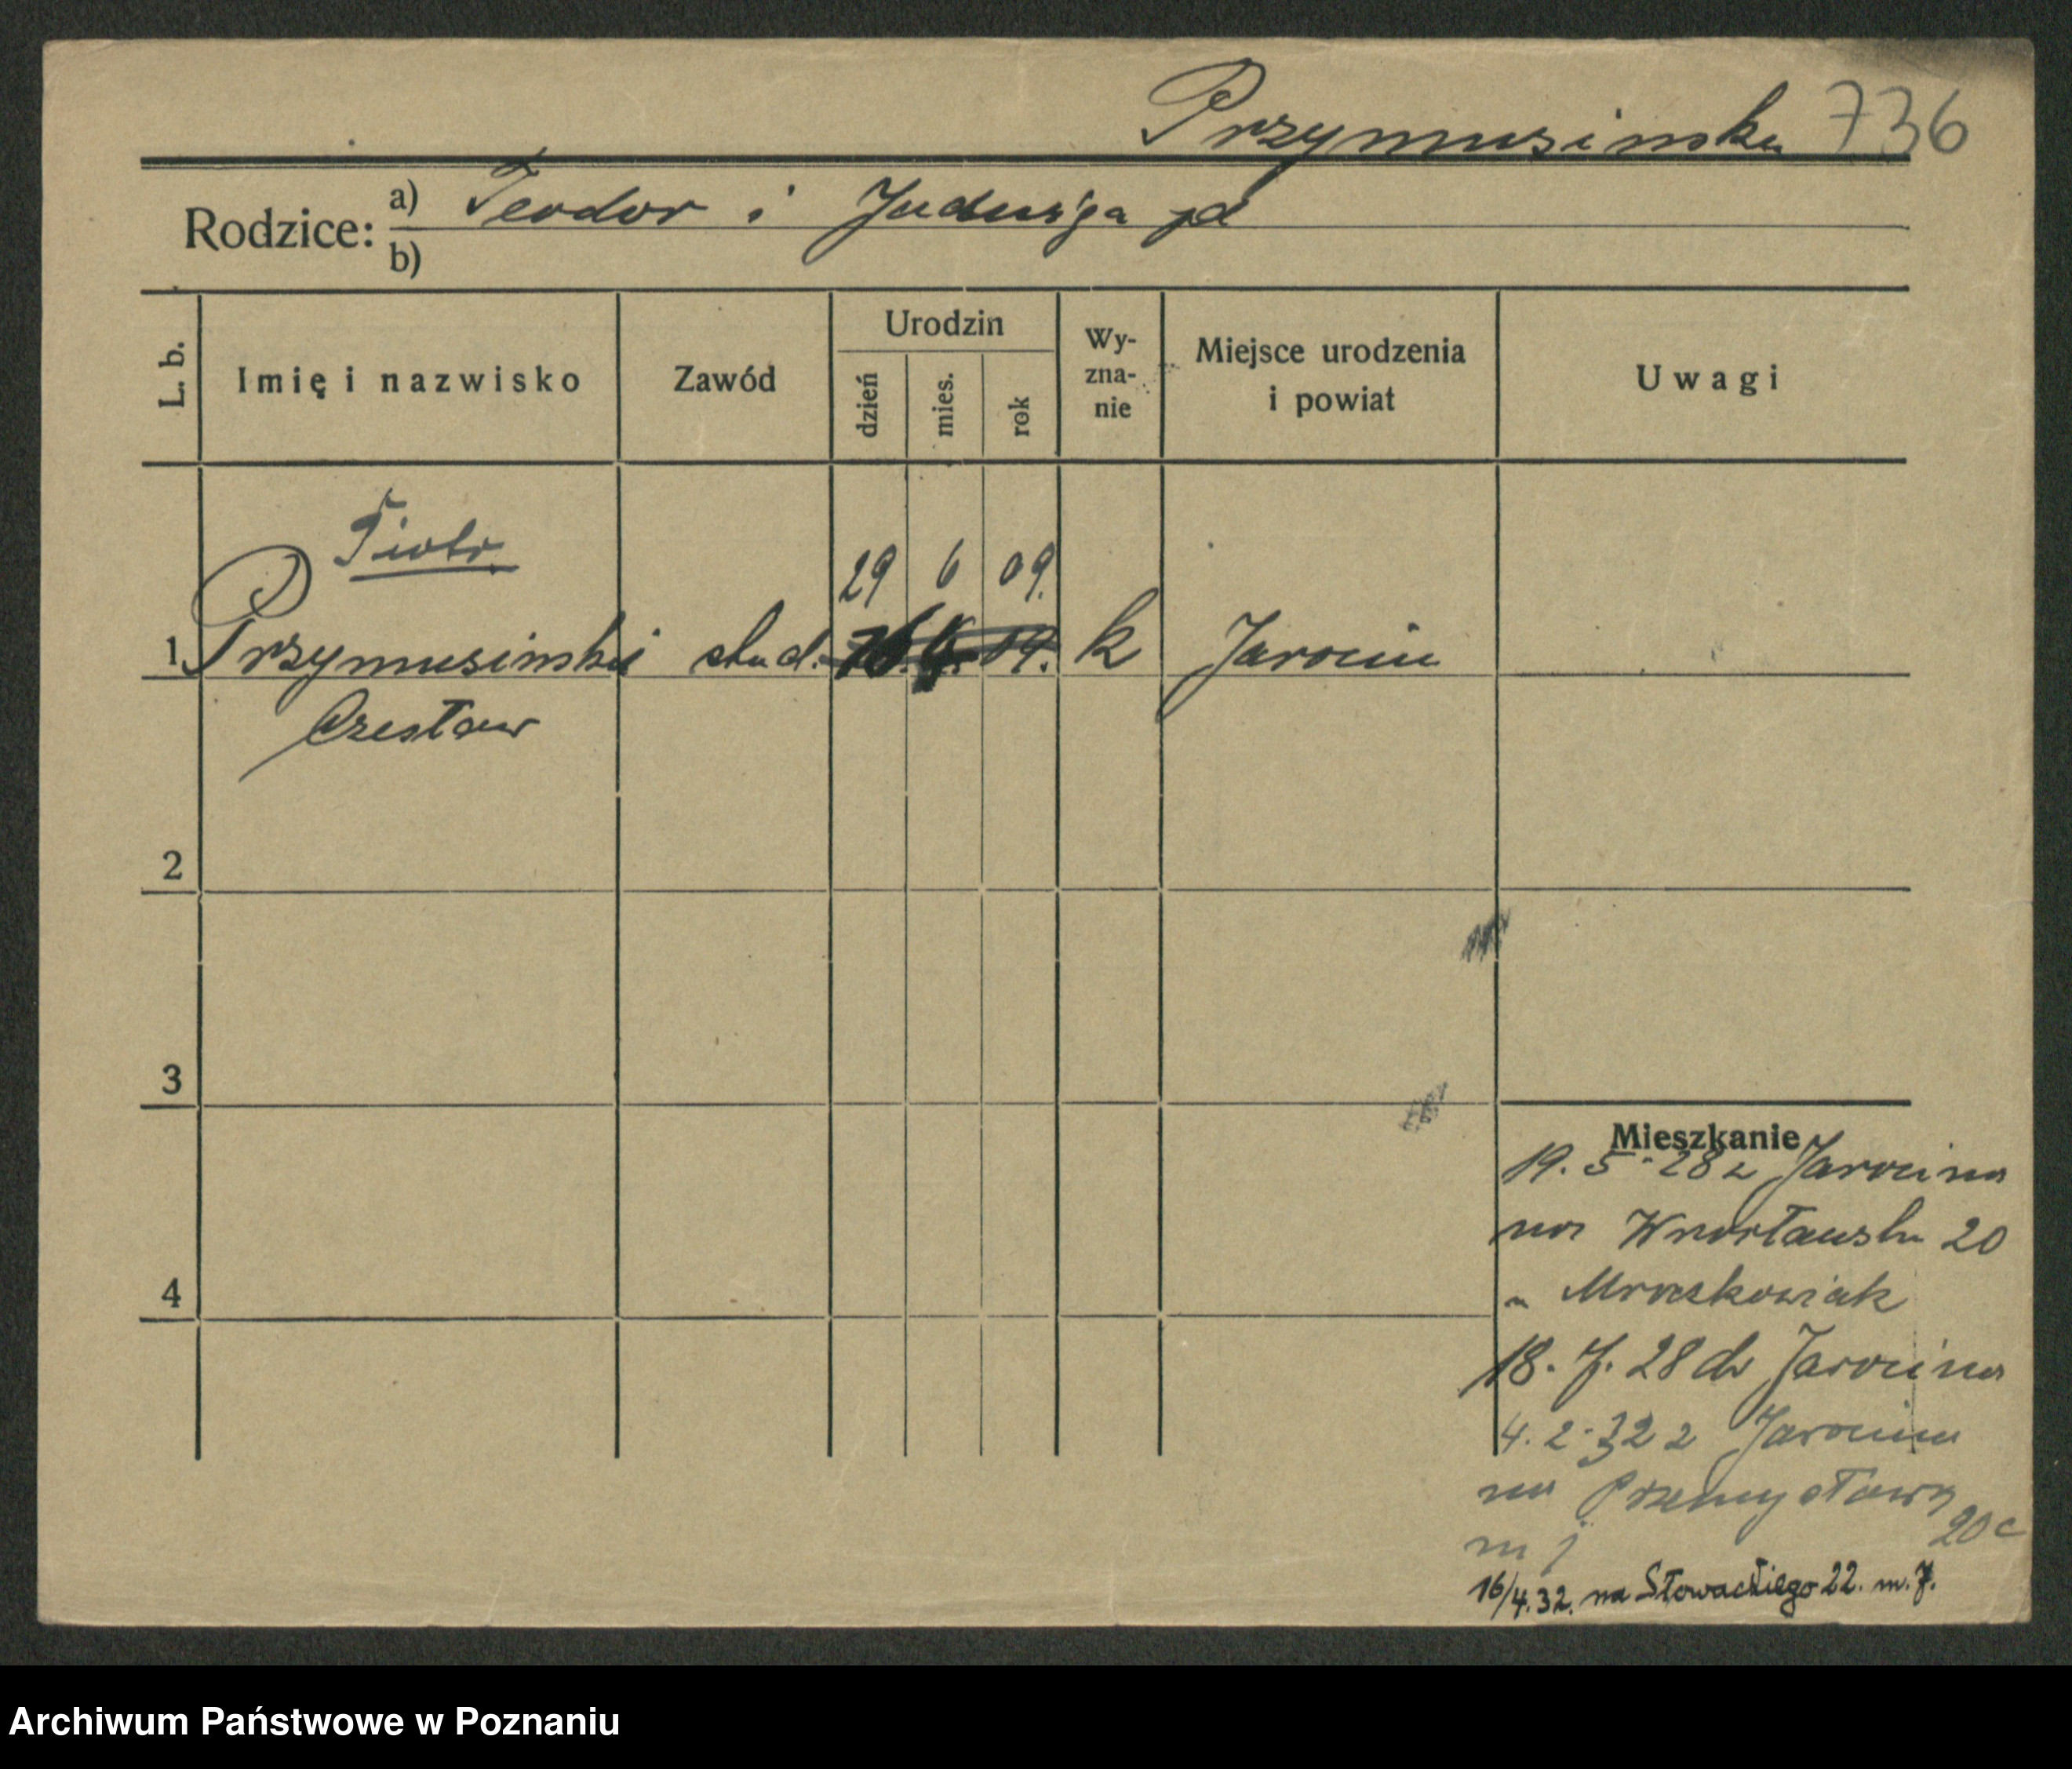 Przymusinska 736
Rodzice: a) Teodor i Jadwiga jd
b)
L. b.
Imię i nazwisko
Zawód
Urodzin
dzień
mies.
rok
Wy-
zna-
nie
Miejsce urodzenia
i powiat
Uwagi
Piotr
29 6 09.
1 Przymusinski stud. 09. k Jarocin
Czesław
2
3
4
Mieszkanie
19. 5. 28 z Jarocina
na Wrocławska 20
u Mroczkowiak
18. 7. 28 do Jarocina
4. 2. 32 z Jarocina
na Przemysłowa
20 c
m j
16/4. 32. na Słowackiego 22. m. 7.
Archiwum Państwowe w Poznaniu